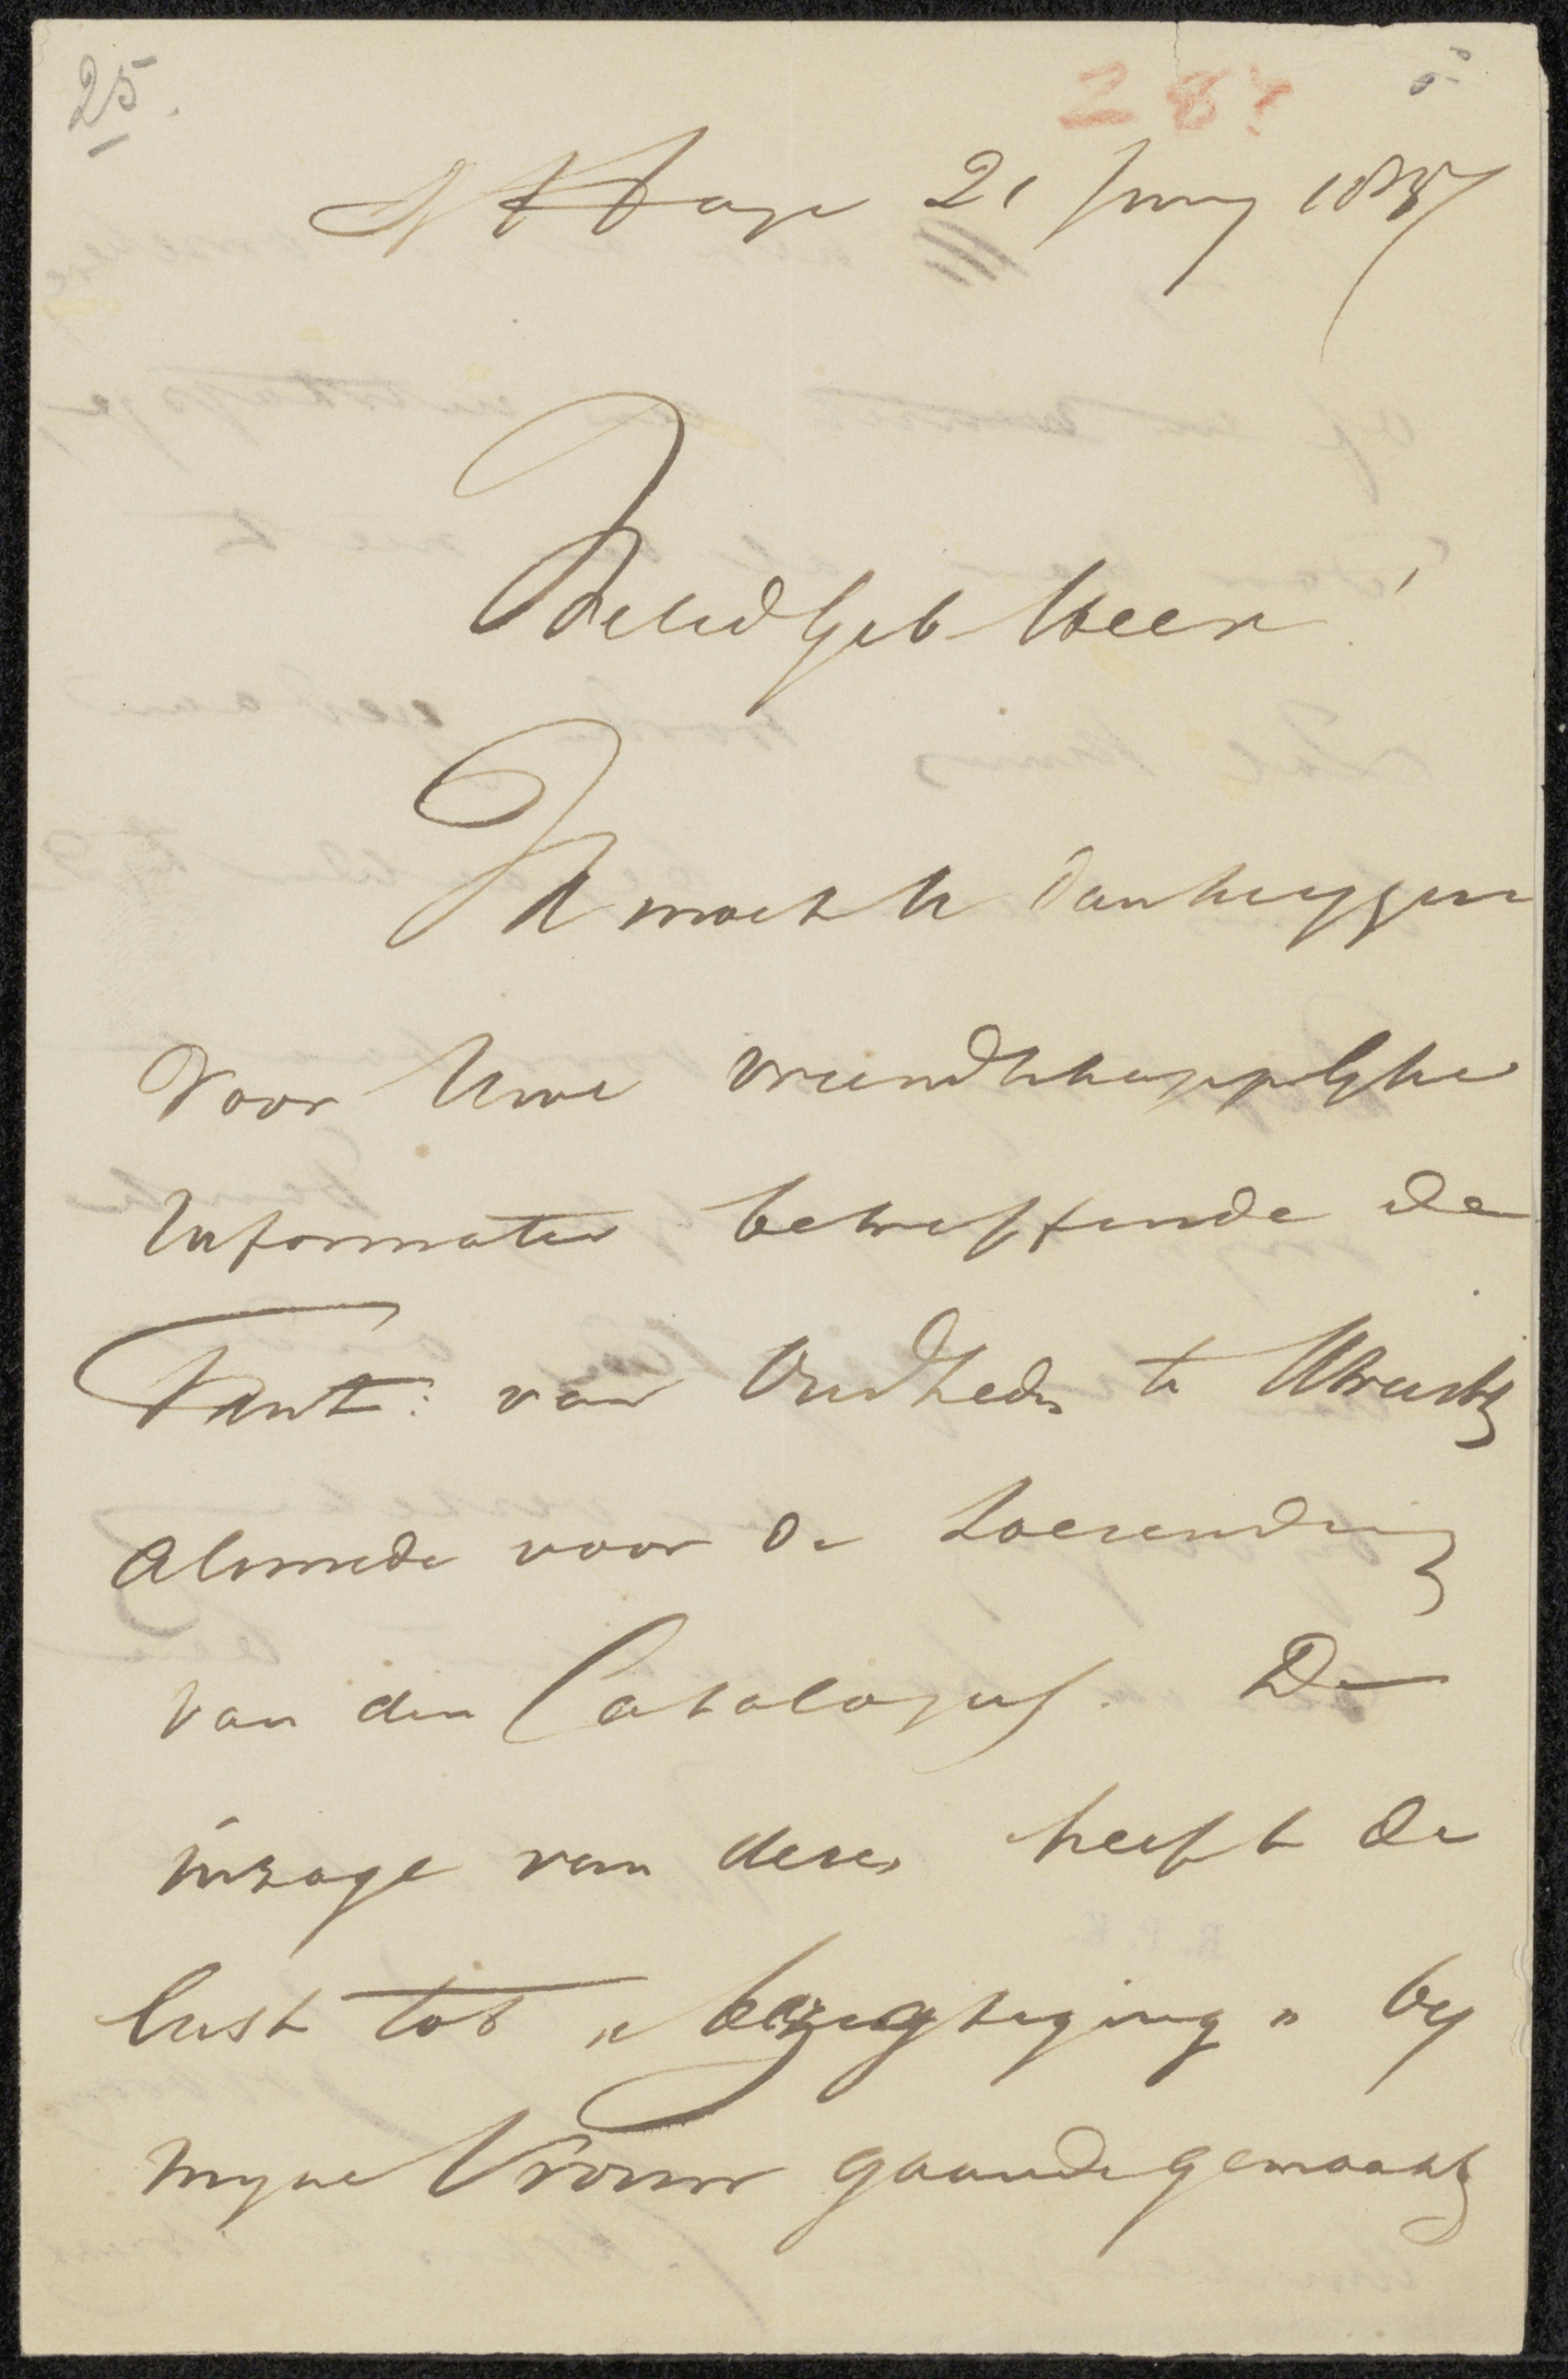 25.
287
s Hage 21 Juny 1857
WelEdGeb Heer!
Ik moet U dankzeggen
voor Uwe vriendschappelyke
Informatie betreffende de
Tent: van Oudheden te Utrecht,
alsmede voor de toezending
van den Catalogus. De
inzage van dezen heeft de
lust tot „ bezigtiging " by
myne Vrouw gaande gemaakt,